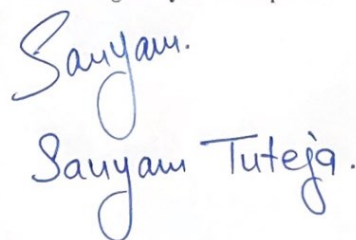 Sanyam.
Sanyam Tuteja.